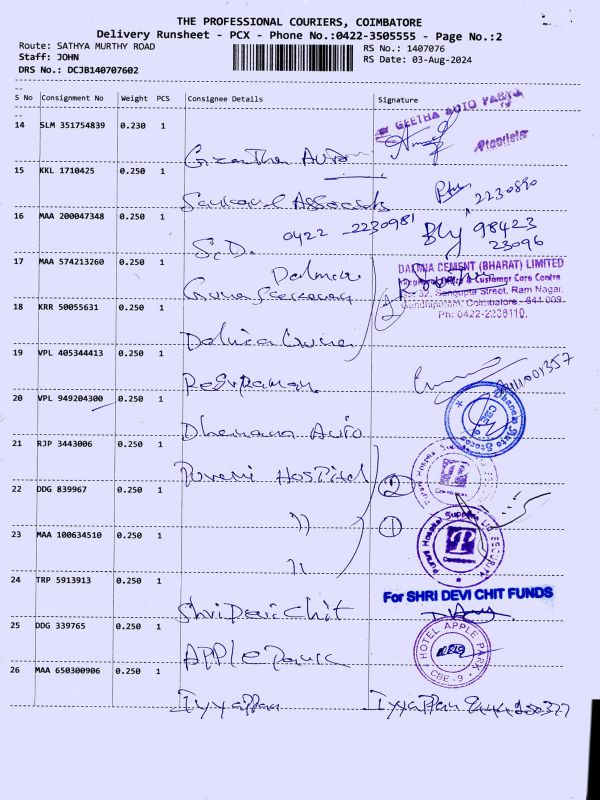 THE PROFESSIONAL COURIERS, COIMBATORE
Delivery Runsheet - PCX - Phone No.:0422-3505555 - Page No.:2
Route: SATHYA MURTHY ROAD
RS No.: 1407076
Staff: JOHN
RS Date: 03-Aug-2024
DRS No.: DCJB140707602
S No Consignment No Weight PCS Consignee Details Signature
14 SLM 351754839 0.230 1
GEETHA AUTO PARTS
Auto
15 KKL 1710425 0.250 1
Associates 2230890
16 MAA 200047348 0.250 1
S.D. 0422 - 2230981 98423
23096
17 MAA 574213260 0.250 1
Dalmia
DALMIA CEMENT (BHARAT) LIMITED
& Customer Care Centre
Sengupta Street, Ram Nagar,
Coimbatore - 641 009
Ph: 0422-2238110.
18 KRR 50055631 0.250 1
Dalmia
19 VPL 405344413 0.250 1
20 VPL 949204300 0.250 1
Auto
21 RJP 3443006 0.250 1
Purani Hospital
22 DDG 839967 0.250 1
2
〃
23 MAA 100634510 0.250 1
1
〃
24 TRP 5913913 0.250 1
For SHRI DEVI CHIT FUNDS
Shri Devi Chit
25 DDG 339765 0.250 1
Apple Park
HOTEL APPLE PARK
CBE - 9
26 MAA 650300906 0.250 1
Iyyappan Iyyappan